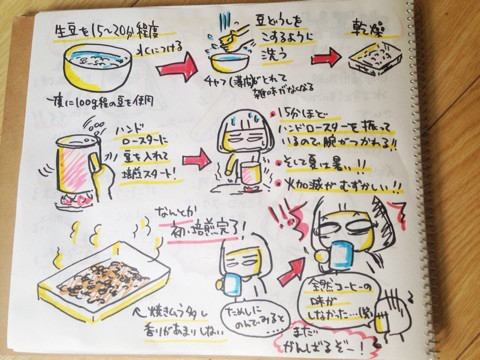 生豆を15〜20分程度
水につける
一度に100g程の豆を使用
豆どうしを
こするように
洗う
チャフ(薄皮)がとれて
雑味がなくなる
乾燥
ハンド
ロースターに
豆を入れて
焙煎スタート!
・15分ほど
ハンドロースターを振って
いるので、腕がつかれる!!
・そして夏は暑い!!
・火加減がむずかしい!!
なんとか
初・焙煎完了!
焼きムラ多し
香りがあまりしない
ためしに
のんでみると…
全然コーヒーの
味が
しなかった…(笑)
まだ
がんばるぞー!